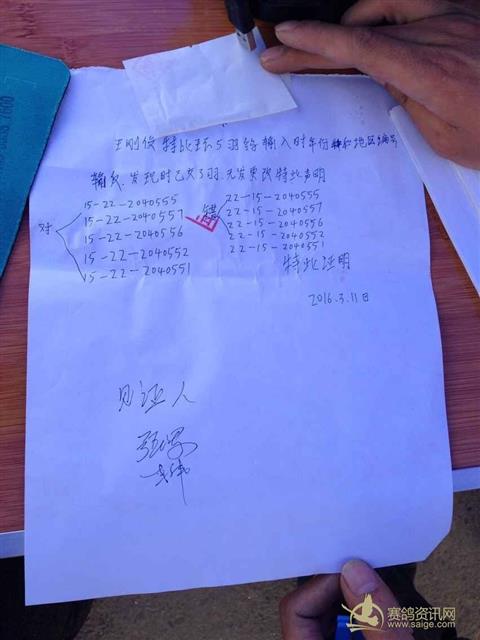 王刚俊特比环5羽鸽输入时年份和地区编号
输反.发现时已交5羽.无发票改特此声明
对
15-22-2040555
15-22-2040557
15-22-2040556
15-22-2040552
15-22-2040551
错
22-15-2040555
22-15-2040557
22-15-2040556
22-15-2040552
22-15-2040551
特此证明
2016.3.11日
见证人
赛鸽资讯网
www.saige.com